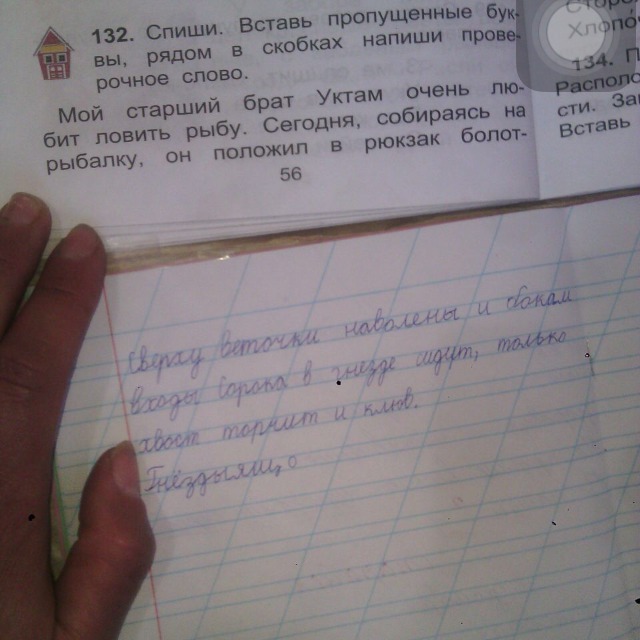 132. Спиши. Вставь пропущенные бук-
вы, рядом в скобках напиши прове-
рочное слово.
Мой старший брат Уктам очень лю-
бит ловить рыбу. Сегодня, собираясь на
рыбалку, он положил в рюкзак болот-
56
Хлопо
134. П
Располо
сти. За
Вставь
Сверху веточки навалены и сбокам
входы Сорока в гнезде сидит, только
хвост торчит и клюв.